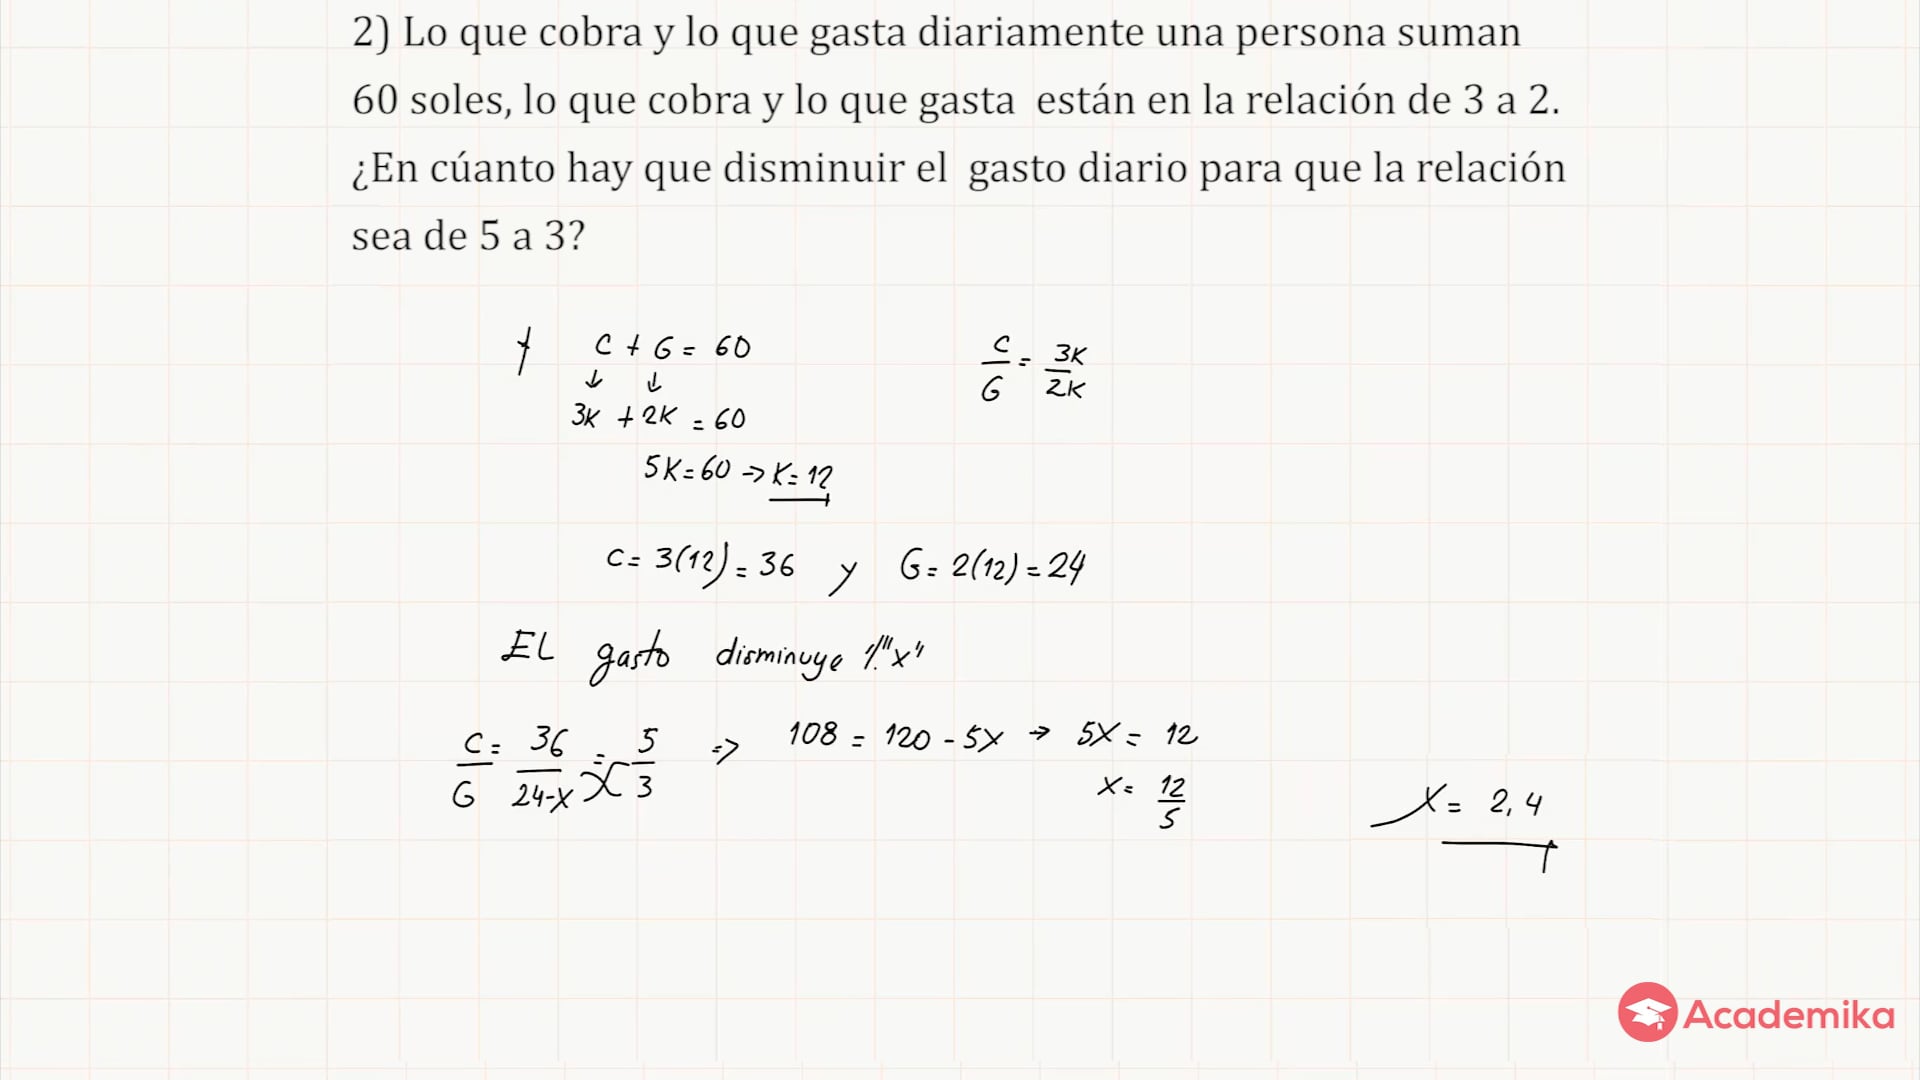 2) Lo que cobra y lo que gasta diariamente una persona suman
60 soles, lo que cobra y lo que gasta están en la relación de 3 a 2.
¿En cúanto hay que disminuir el gasto diario para que la relación
sea de 5 a 3?
C + G = 60
↓ ↓
3K + 2K = 60
5K = 60 → K = 12
C/G = 3K/2K
C = 3(12) = 36 y G = 2(12) = 24
EL gasto disminuye "x"
C/G = 36/24-x = 5/3 => 108 = 120 - 5x → 5x = 12
x = 12/5
x = 2,4
Academika